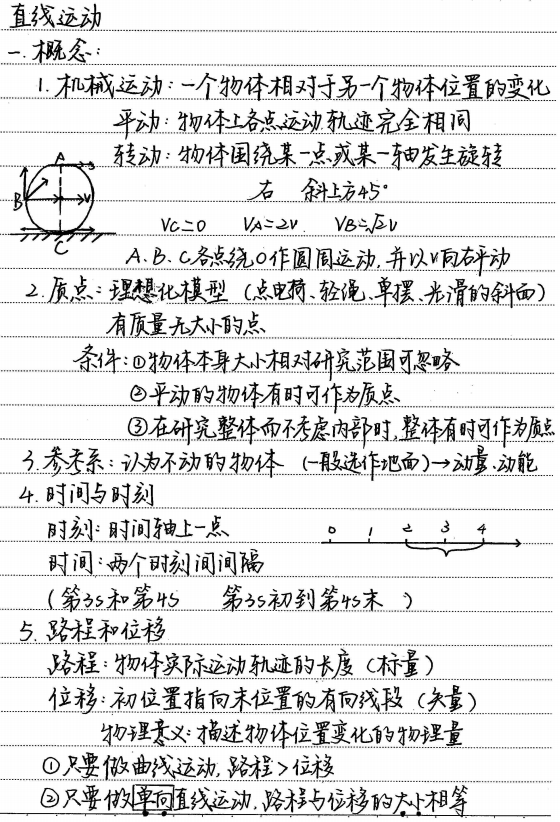 直线运动
一.概念:
1. 机械运动:一个物体相对于另一个物体位置的变化
平动:物体上各点运动轨迹完全相同
转动:物体围绕某一点或某一轴发生旋转
A
B
V
C
右 斜上方45°
VC=0 VA=2V VB=√2V
A.B.C各点绕O作圆周运动,并以V向右平动
2.质点:理想化模型(点电荷、轻绳、单摆、光滑的斜面)
有质量无大小的点
条件:①物体本身大小相对研究范围可忽略
②平动的物体有时可作为质点
③在研究整体而不考虑内部时,整体有时可作为质点
3.参考系:认为不动的物体(一般选作地面)→动量、动能
4.时间与时刻
时刻:时间轴上一点
0 1 2 3 4
时间:两个时刻间间隔
(第3s和第4s 第3s初到第4s末 )
5.路程和位移
路程:物体实际运动轨迹的长度(标量)
位移:初位置指向末位置的有向线段(矢量)
物理意义:描述物体位置变化的物理量
①只要做曲线运动,路程>位移
②只要做单向直线运动,路程与位移的大小相等